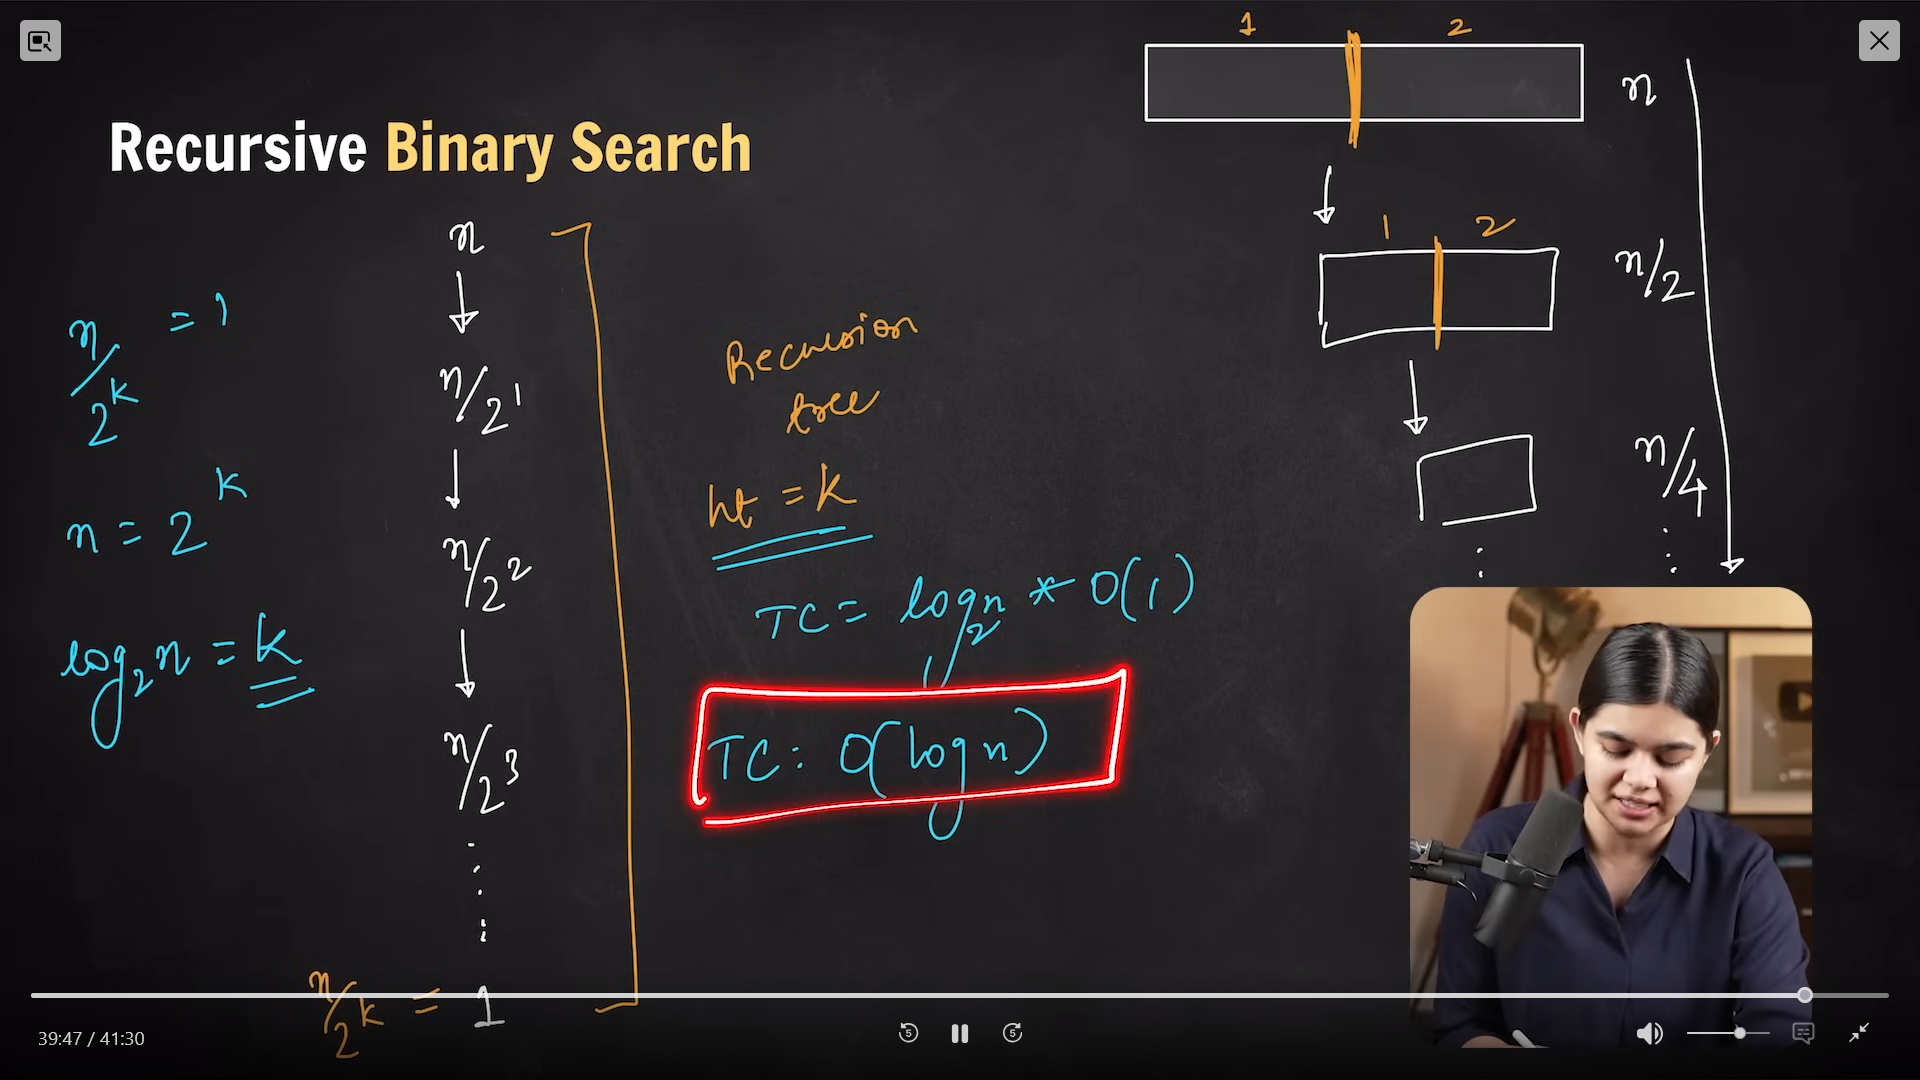 Recursive Binary Search
n/2^k = 1
n = 2^k
log₂n = k
n
n/2^1
n/2^2
n/2^3
n/2^k = 1
Recursion
tree
ht = k
TC = log₂n * O(1)
TC: O(log n)
1 2
n
1 2
n/2
n/4
39:47 / 41:30
5
5